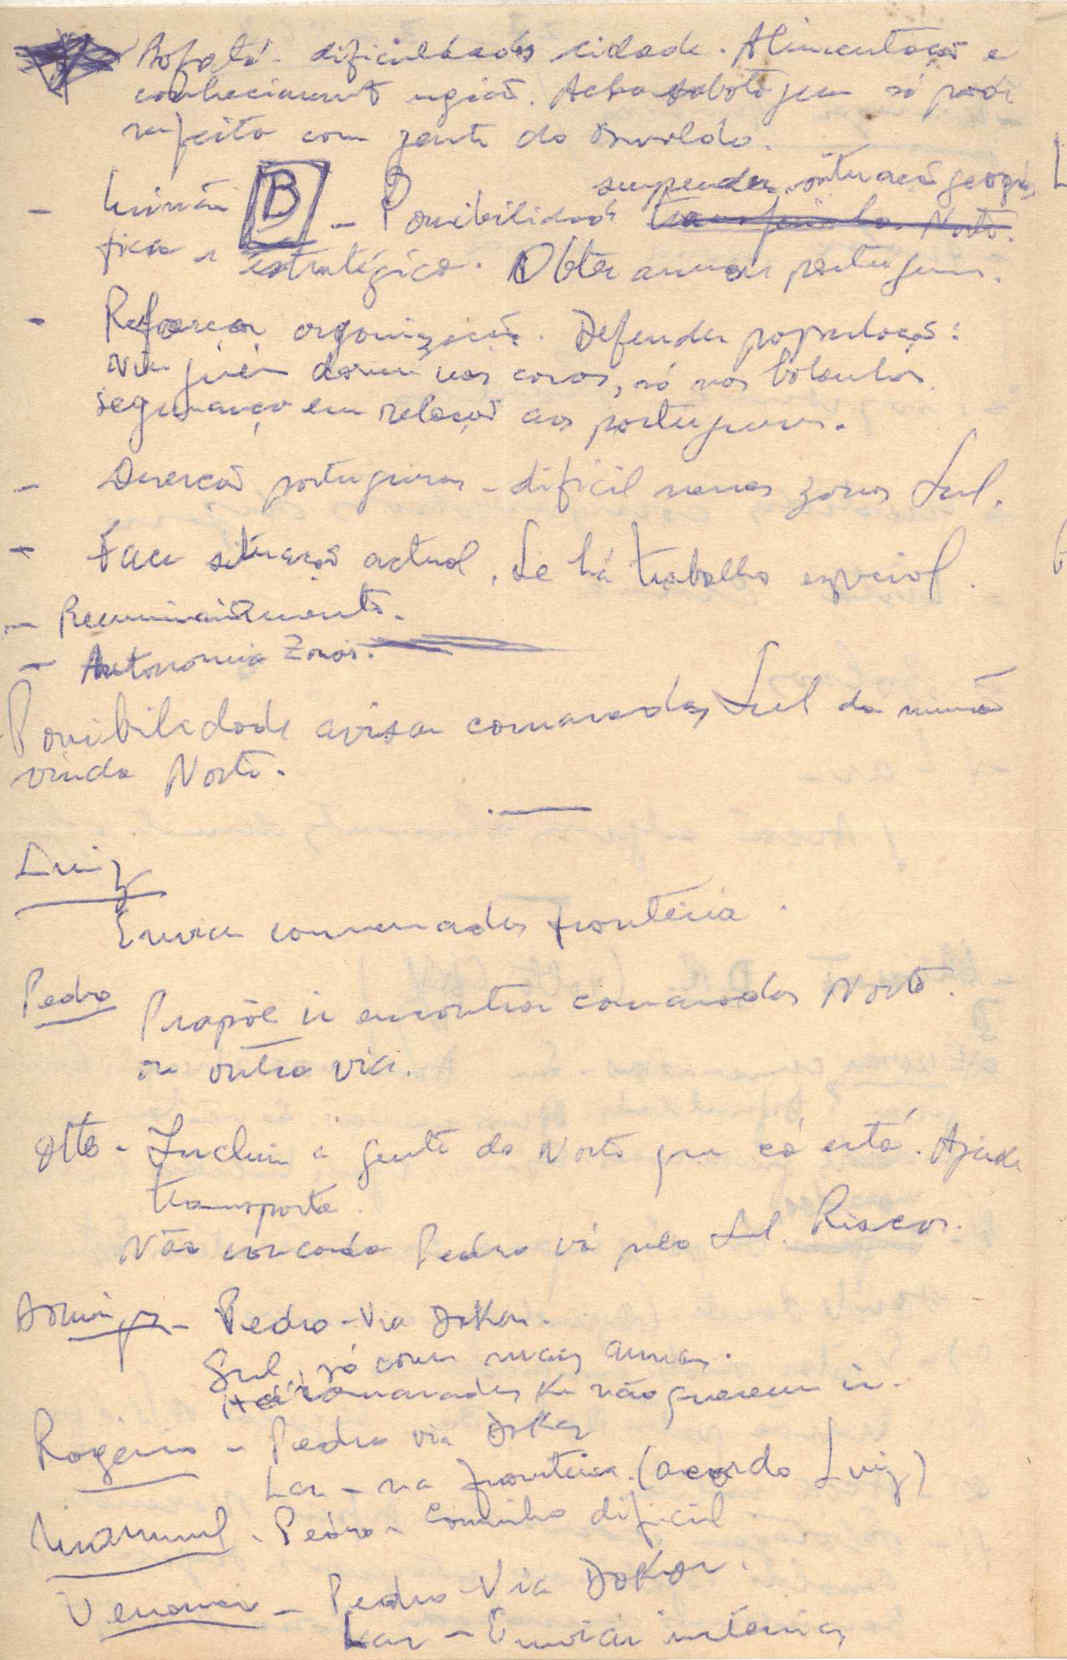 Bafatá - dificuldades cidade. Alimentação e
conhecimento região. Acha sabotagem só pode
ser feita com gente do Osvaldo.
- B - Possibilidade suspender, situação geográ-
fica e estratégica. Obter armas portugueses.
- Reforçar organização. Defender população:
Ninguém dormir nas casas, só nos
segurança em relação aos portugueses.
- Deserção portugueses - difícil nessas zonas Sul.
- Face situação actual. Se há trabalho especial.
- Recenseamento.
- Autonomia Zonas.
Possibilidade avisar camaradas Sul da
vinda Norte.
Luiz
Enviar camaradas fronteira.
Pedro Propõe ir encontrar camaradas Norte.
ou outra via.
Otto - Incluir a gente do Norte que cá está. Ajuda
transporte.
Não concorda Pedro vá pelo Sul. Riscos.
Domingos - Pedro - Via Dakar.
Sul, só com mais armas.
Há camaradas ke não querem ir.
Rogério - Pedro via Dakar
Lar - na fronteira. (acordo Luiz)
- Pedro - Caminho difícil
- Pedro - Via Dakar.
Lar - Enviar